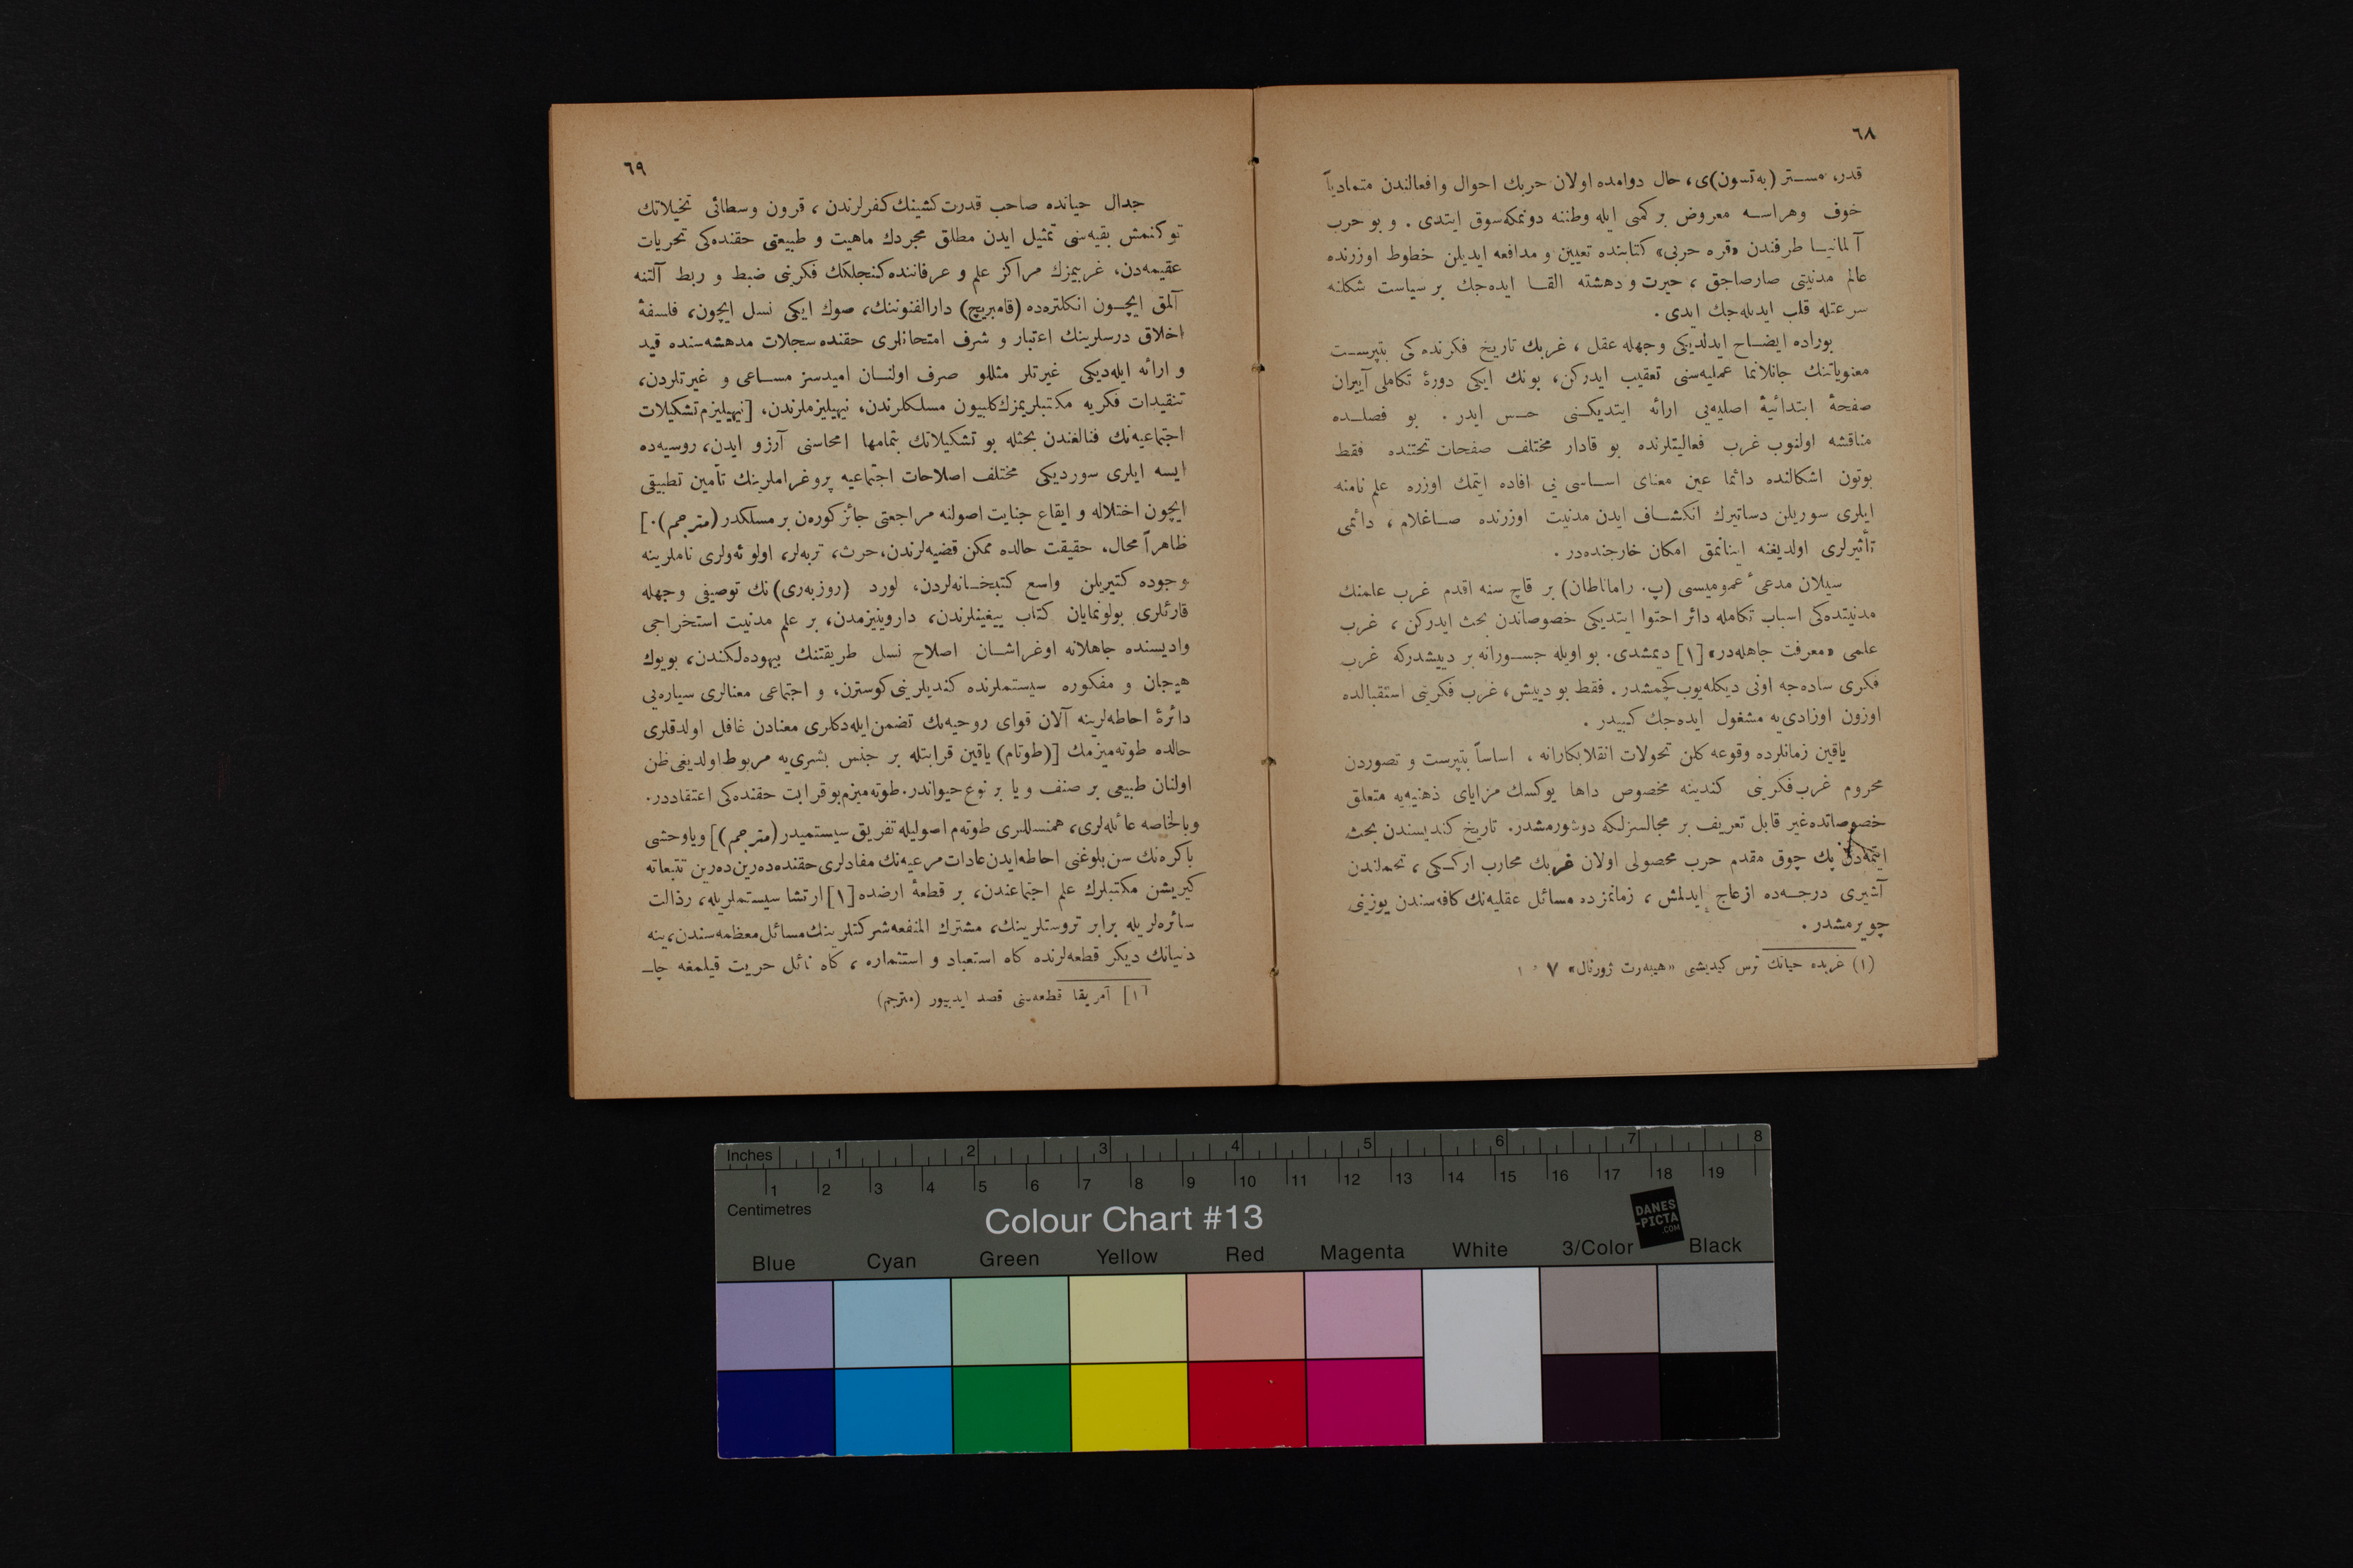 ٦٨
قدر، مستر (به‌تسون)ی، حال دوامده اولان حربك احوال وافعالندن متمادیاً
خوف وهراسه معروض بر کمی ایله وطننه دونمکه سوق ایتدی . و بو حرب
آلمانیا طرفندن «قره حربی» کتابنده تعیین و مدافعه ایدیلن خطوط اوزرنده
عالم مدنیتی صارصاجق ، حیرت و دهشته القا ایده‌جك بر سیاست شکلنه
سرعتله قلب ایدیله‌جك ایدی .
بوراده ایضاح ایدلدیکی وجهله عقل ، غربك تاریخ فکرنده کی بتپرست
معنویاتنك جانلانما عملیه‌سنی تعقیب ایدرکن، بونك ایکی دورۀ تکاملی آییران
صفحۀ ابتدائیۀ اصلیه‌یی ارائه ایتدیکنی حس ایدر . بو فصلده
مناقشه اولنوب غرب فعالیتلرنده بو قادار مختلف صفحات تحتنده فقط
بوتون اشکالنده دائما عین معنای اساسی نی افاده ایتمك اوزره علم نامنه
ایلری سوریلن دساتیرك انکشاف ایدن مدنیت اوزرنده صاغلام ، دائمی
تأثیرلری اولدیغنه اینانمق امکان خارجنده‌در .
سیلان مدعیٔ عمومیسی (پ. راماناطان) بر قاچ سنه اقدم غرب علمنك
مدنیتده‌کی اسباب تکامله دائر احتوا ایتدیکی خصوصاندن بحث ایدرکن ، غرب
علمی «معرفت جاهله‌در» [١] دیمشدی. بو اویله جسورانه بر دییشدرکه غرب
فکری ساده‌جه اونی دیکله‌یوب کچمشدر . فقط بو دییش، غرب فکرینی استقبالده
اوزون اوزادی‌یه مشغول ایده‌جك کبیدر .
یاقین زمانلرده وقوعه کلن تحولات انقلابکارانه ، اساساً بتپرست و تصوردن
محروم غرب فکرینی کندینه مخصوص داها یوکسك مزایای ذهنیه‌یه متعلق
خصوصاتده غیر قابل تعریف بر مجالسزلکه دوشورمشدر. تاریخ کندیسندن بحث
ایتمه‌دن پك چوق مقدم حرب محصولی اولان غربك محارب ارککی ، تحملندن
آشیری درجه‌ده ازعاج ایدلمش ، زمانمزده مسائل عقلیه‌نك کافه‌سندن یوزینی
چویرمشدر .
(١) غربده حیاتك ترس کیدیشی «هیبه‌رت ژورنال» ٧
٦٩
جدال حیاتنده صاحب قدرت کشینك کفرلرندن ، قرون وسطائی تخیلاتك
توکنمش بقیه‌سنی تمثیل ایدن مطلق مجردك ماهیت و طبیعتی حقنده‌کی تحریات
عقیمه‌دن، غربیمزك مراکز علم و عرفاننده کنجلکك فکرینی ضبط و ربط آلتنه
آلمق ایچون انکلتره‌ده (قامبریچ) دارالفنوننك، صوك ایکی نسل ایچون، فلسفۀ
اخلاق درسلرینك اعتبار و شرف امتحانلری حقنده سجلات مدهشه‌سنده قید
و ارائه ایله‌دیکی غیرتلر مثللو صرف اولنان امیدسز مساعی و غیرتلردن،
تنقیدات فکریه مکتبلریمزك کلبیون مسلکلرندن، نیهیلیزملرندن، [نیهیلیزم تشکیلات
اجتماعیه‌نك فنالغندن بحثله بو تشکیلاتك بتمامها امحاسنی آرزو ایدن، روسیه‌ده
ایسه ایلری سوردیکی مختلف اصلاحات اجتماعیه پروغراملرینك تأمین تطبیقی
ایچون اختلاله و ایقاع جنایت اصولنه مراجعتی جائز کوره‌ن بر مسلکدر (مترجم).]
ظاهراً محال، حقیقت حالده ممکن قضیه‌لرندن، حرث، تربه‌لر، اولو ئه‌ولری ناملرینه
وجوده کتیریلن واسع کتبخانه‌لردن، لورد (روزبه‌ری)نك توصیفی وجهله
قارئلری بولونمایان کتاب ییغینلرندن، داروینیزمدن، بر علم مدنیت استخراجی
وادیسنده جاهلانه اوغراشان اصلاح نسل طریقتنك بیهوده‌لکندن، بویوك
هیجان و مفکوره سیستملرنده کندیلرینی کوسترن، و اجتماعی معنالری سیاره‌یی
دائرۀ احاطه‌لرینه آلان قوای روحیه‌نك تضمن ایله‌دکلری معنادن غافل اولدقلری
حالده طوته‌میزمك [(طوتام) یاقین قرابتله بر جنس بشری‌یه مربوط اولدیغی ظن
اولنان طبیعی بر صنف و یا بر نوع حیواندر. طوته‌میزم بو قرابت حقنده‌کی اعتقاددر.
وبالخاصه عائله‌لری، همنسللری طوته‌م اصولیله تفریق سیستمیدر (مترجم)] ویا وحشی
باکره‌نك سن بلوغنی احاطه ایدن عادات مرعیه‌نك مفادلری حقنده ده‌رین ده‌رین تتبعاته
کیریشن مکتبلرك علم اجتماعندن، بر قطعۀ ارضده [١] ارتشا سیستملریله، رذالت
سائره‌لریله برابر تروستلرینك، مشترك المنفعه شرکتلرینك مسائل معظمه‌سندن، ینه
دنیانك دیکر قطعه‌لرنده کاه استعباد و استثماره ، کاه نائل حریت قیلمغه چا‍ـ
[١] آمریقا قطعه‌سنی قصد ایدییور (مترجم)
Inches 1 2 3 4 5 6 7 8
1 2 3 4 5 6 7 8 9 10 11 12 13 14 15 16 17 18 19
Centimetres
Colour Chart #13
DANES
-PICTA
.COM
Blue Cyan Green Yellow Red Magenta White 3/Color Black